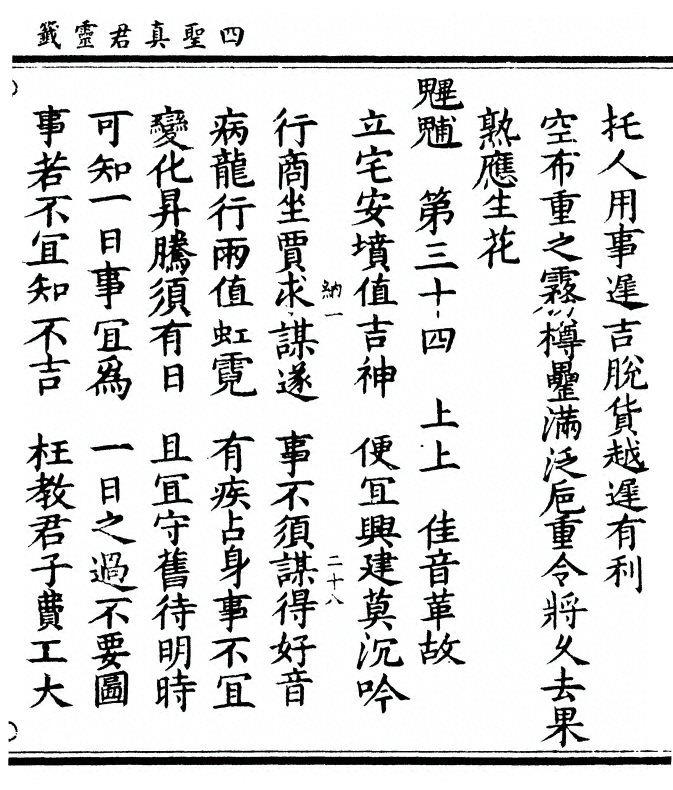 四聖真君靈籤
托人用事遲吉脫貨越遲有利
空布重之霧 樽罍滿泛巵重令將久去果
熟應生花
第三十四 上上 佳音革故
立宅安墳值吉神 便冝興建莫沉吟
行商坐賈求謀遂 事不須謀得好音
納一 二十八
病龍行雨值虹霓 有疾占身事不冝
變化昇騰須有日 且冝守舊待明時
可知一日事冝爲 一日之過不要圖
事若不冝知不吉 枉教君子費工大